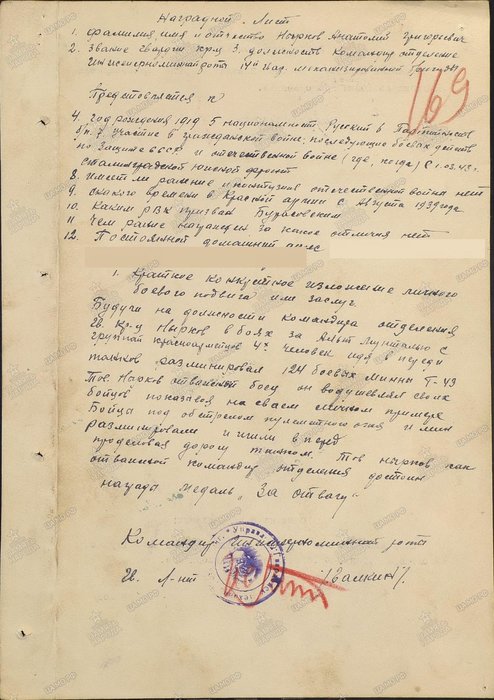 Наградной Лист
169
1. Фамилия, имя и отчество Нырков Анатолий Григорьевич
2. Звание гвардии кр-ц 3. должность Командир отделение
инженерноминной роты 14й гвар. механизированной бригады
Представляется к
4. год рождения 1919 5 национальность Русский 6 Партийность
б/п. 7. участие в гражданской войне, последующих боевых действ
по защите СССР и отечественной войне (где, когда) С 1.03.43 г.
Сталинградский южной фронт
8 имеет ли ранение и контузия отечественной войне нет
9 с какого времени в Красной армии с Августа 1939 года
10. Каким РВК призван
11. Чем ранее награжден за какие отличия нет
12. Постоянной домашний адрес
1. Краткое конкретное изложение личного
боевого подвига или заслуг.
Будучи на должности командира отделения
гв. Кр-ц Нырков в боях за
группой красноармейцев 4х человек идя в переди
танков разминировал 124 боевых мины Т-43
Тов. Нырков отважной боец он водушевлял своих
бойцов показася на своем личном примере
Бойцы под обстрелом пулеметного огня и мин
разминировали и шли в перед
проделовая дорогу танкам. Тов нырков как
отважной командир отделения достоин
награды медаль „За отвагу"
Командир инженерноминной роты
гв. Л-нт /Галкин/.